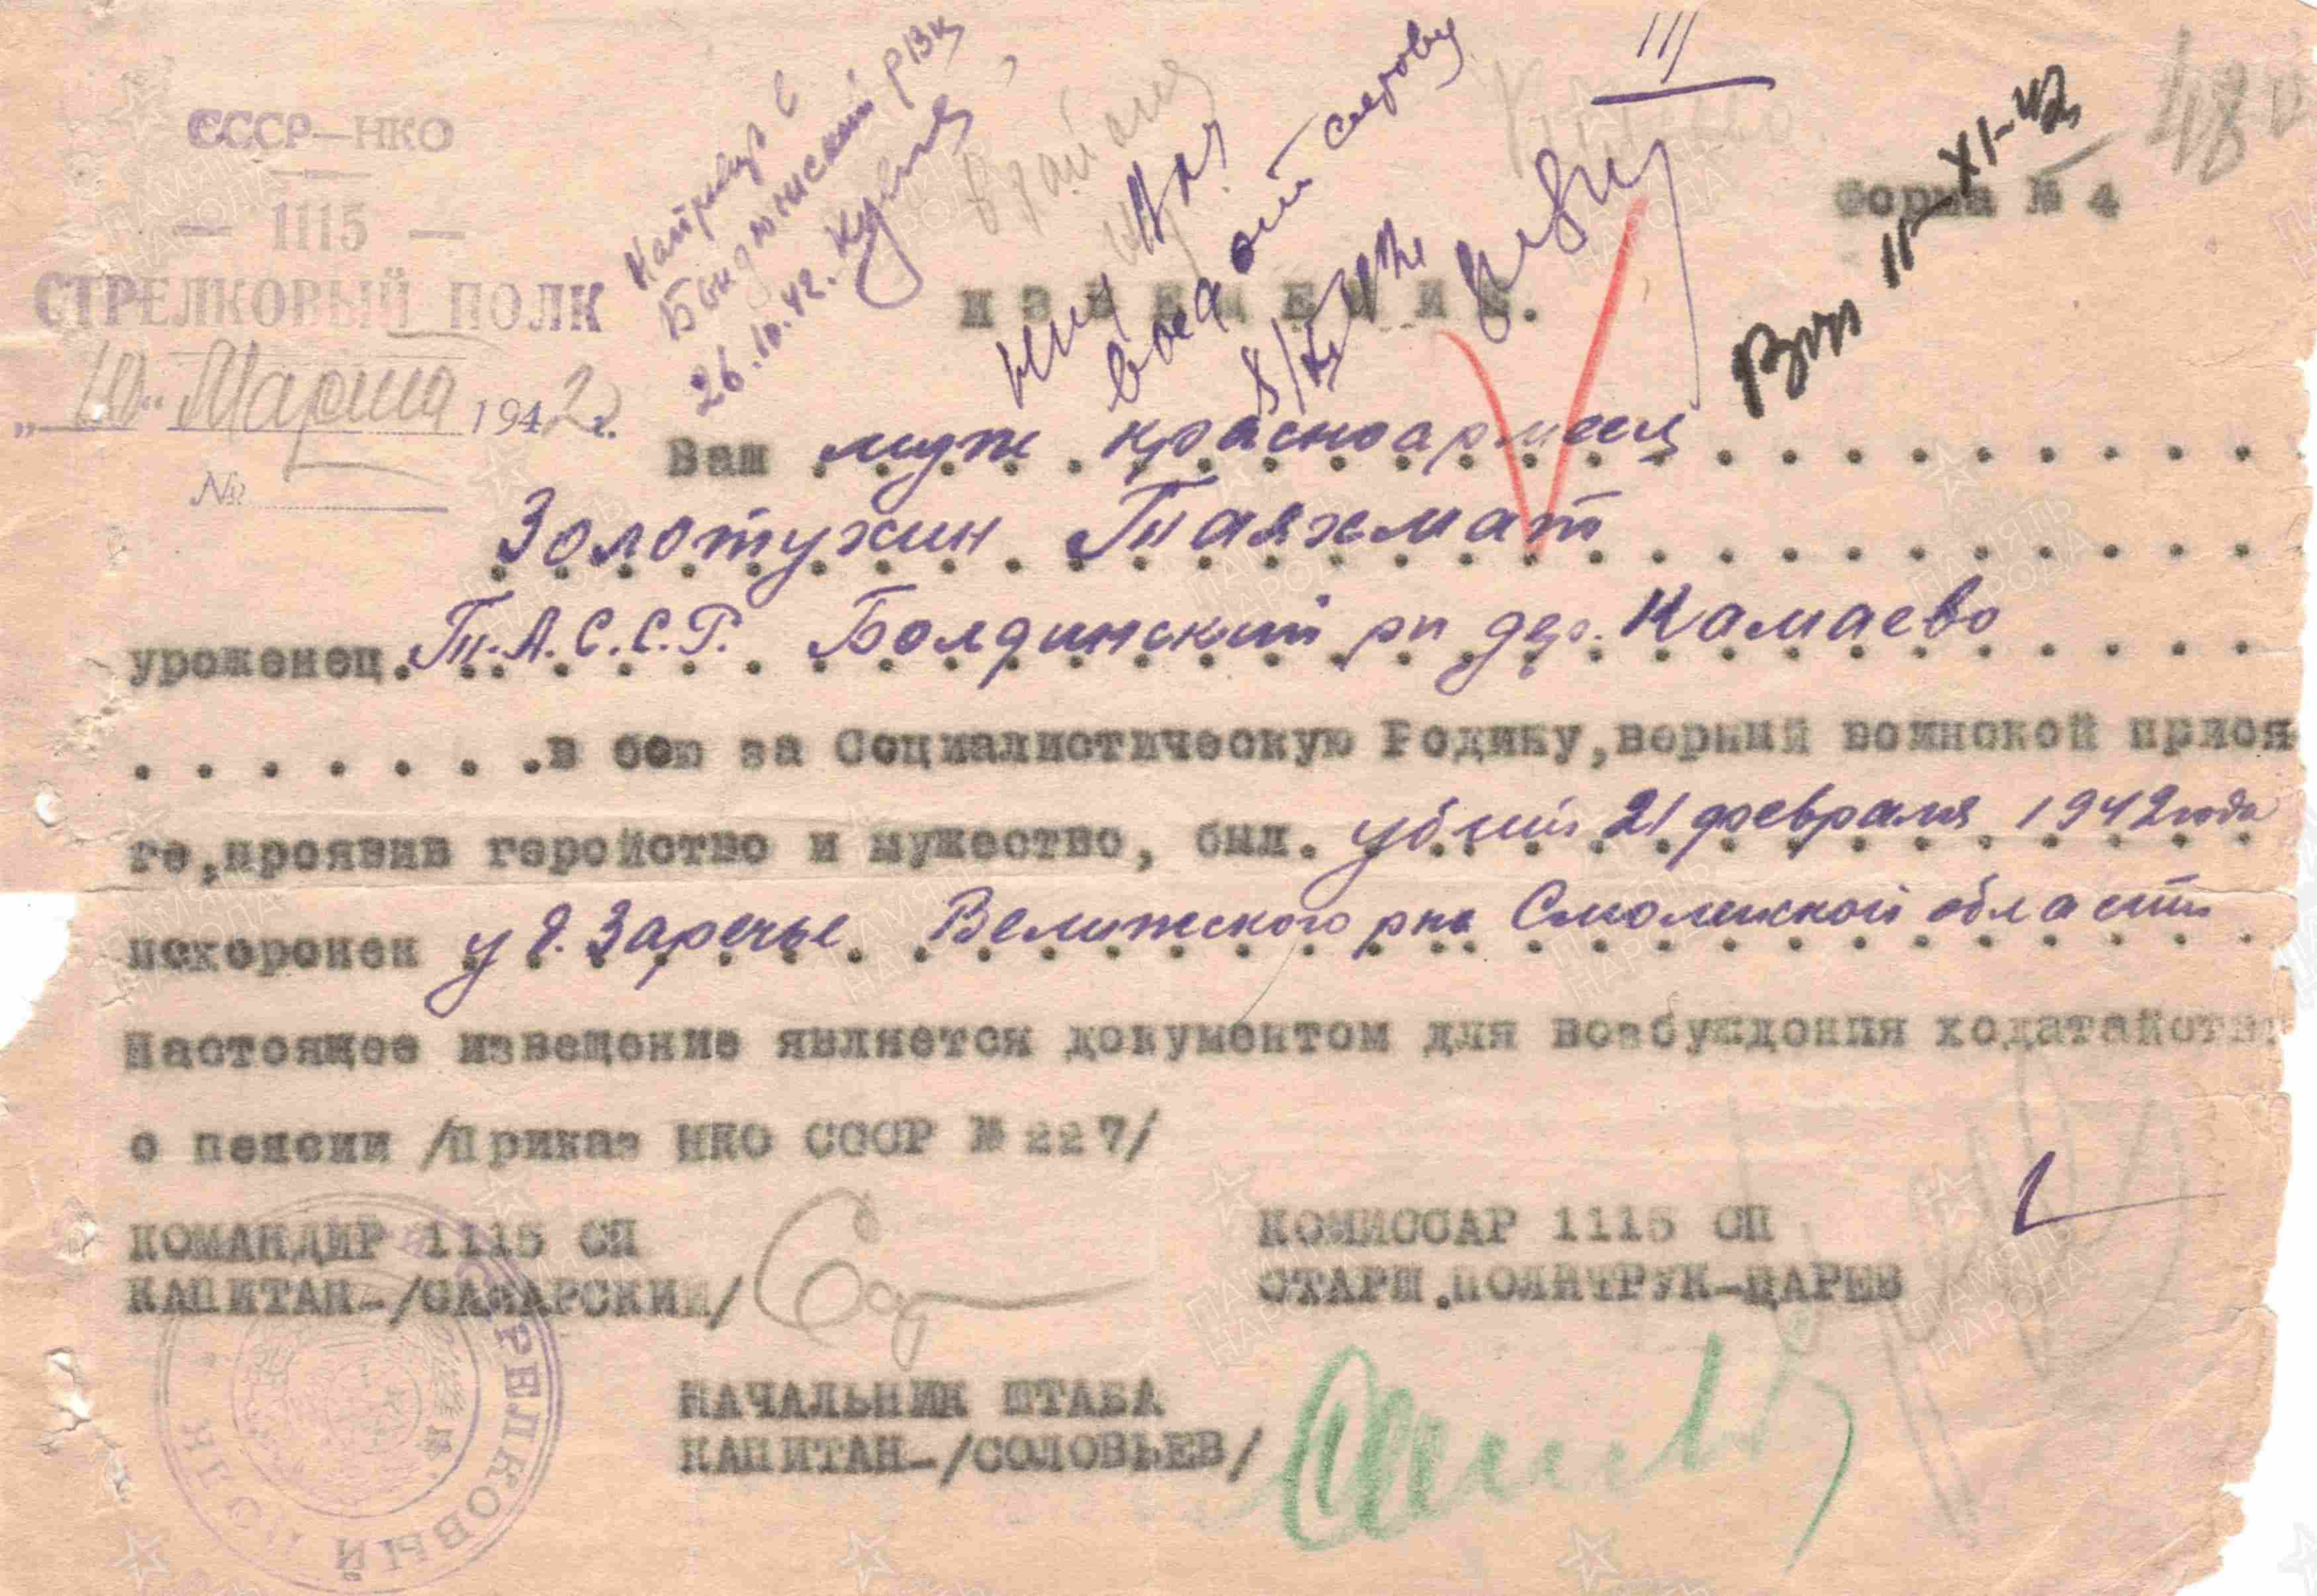 СССР—НКО
— 1115 —
СТРЕЛКОВЫЙ ПОЛК
„10“ Марта 1942 г.
№
26.10.42г.
III
48
Форма № 4
ИЗВЕЩЕНИЕ.
Ваш муж красноармеец
Золотухин Таяхмат
уроженец Т.А.С.С.Р. Болдинский рн дер. Камаево
в бою за Социалистическую Родину, верный воинской прися
ге, проявив геройство и мужество, был. убит 21 февраля 1942 года
похоронен у д. Заречье Велижского рна Смоленской области
Настоящее извещение является документом для возбуждения ходатайств
о пенсии /Приказ НКО СССР № 227/
КОМАНДИР 1115 СП
КАПИТАН-/САМАРСКИЙ/
КОМИССАР 1115 СП
СТАРШ.ПОЛИТРУК-ЦАРЕВ
НАЧАЛЬНИК ШТАБА
КАПИТАН-/СОЛОВЬЕВ/
СТРЕЛКОВЫЙ
ПАМЯТЬ НАРОДА